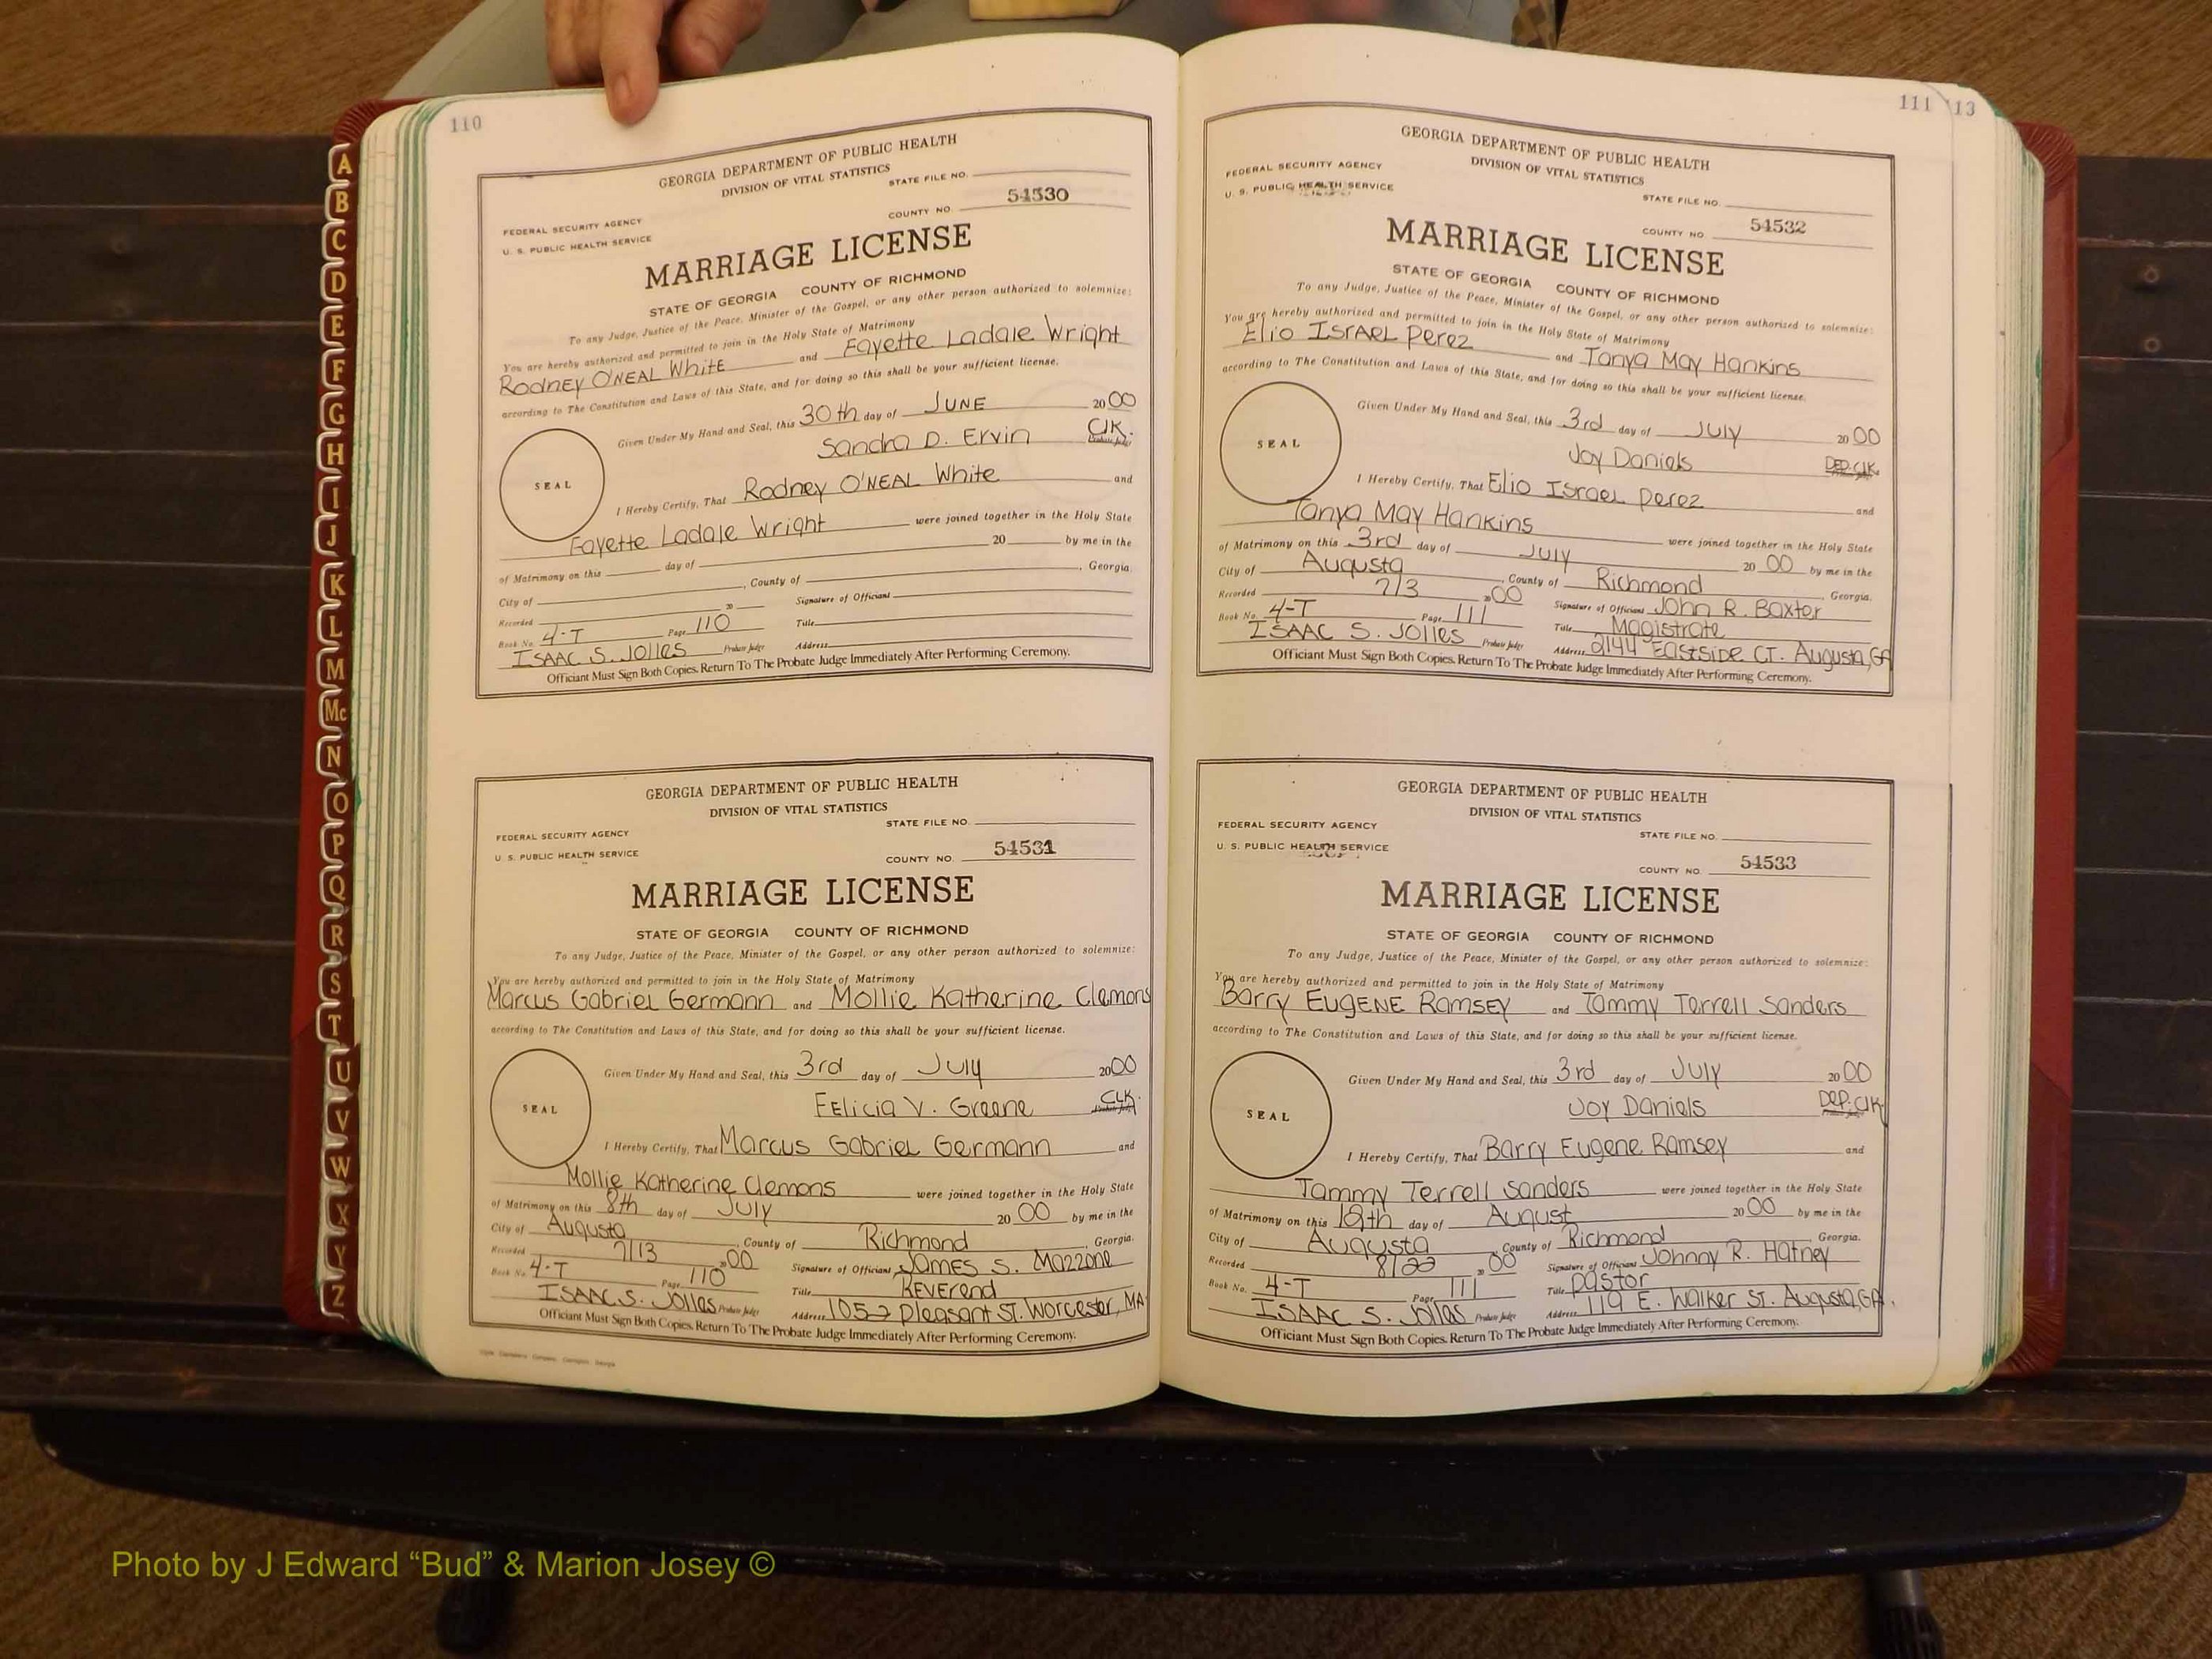 110
GEORGIA DEPARTMENT OF PUBLIC HEALTH
DIVISION OF VITAL STATISTICS
STATE FILE NO.
FEDERAL SECURITY AGENCY
U. S. PUBLIC HEALTH SERVICE
COUNTY NO. 54530
MARRIAGE LICENSE
STATE OF GEORGIA COUNTY OF RICHMOND
To any Judge, Justice of the Peace, Minister of the Gospel, or any other person authorized to solemnize:
You are hereby authorized and permitted to join in the Holy State of Matrimony
Rodney O'NEAL White and Fayette Ladale Wright
according to The Constitution and Laws of this State, and for doing so this shall be your sufficient license.
Given Under My Hand and Seal, this 30th day of JUNE 2000
Sandra D. Ervin Clk.
SEAL
I Hereby Certify, That Rodney O'NEAL White and
Fayette Ladale Wright were joined together in the Holy State
of Matrimony on this day of 20 by me in the
City of , County of , Georgia.
Recorded 20 Signature of Officiant
Book No. 4-T Page 110 Title
ISAAC S. Jolles Probate Judge Address
Officiant Must Sign Both Copies. Return To The Probate Judge Immediately After Performing Ceremony.
GEORGIA DEPARTMENT OF PUBLIC HEALTH
DIVISION OF VITAL STATISTICS
STATE FILE NO.
FEDERAL SECURITY AGENCY
U. S. PUBLIC HEALTH SERVICE
COUNTY NO. 54531
MARRIAGE LICENSE
STATE OF GEORGIA COUNTY OF RICHMOND
To any Judge, Justice of the Peace, Minister of the Gospel, or any other person authorized to solemnize:
You are hereby authorized and permitted to join in the Holy State of Matrimony
Marcus Gabriel Germann and Mollie Katherine Clemons
according to The Constitution and Laws of this State, and for doing so this shall be your sufficient license.
Given Under My Hand and Seal, this 3rd day of July 2000
FElicia V. Greene CLK.
SEAL
I Hereby Certify, That Marcus Gabriel Germann and
Mollie Katherine Clemons were joined together in the Holy State
of Matrimony on this 8th day of July 20 00 by me in the
City of Augusta, County of Richmond, Georgia.
Recorded 7/13 2000 Signature of Officiant JAMES S. Mazzone
Book No. 4-T Page 110 Title REVErend
ISAAC S. Jolles Probate Judge Address 105-7 Pleasant St. Worcester, MA.
Officiant Must Sign Both Copies. Return To The Probate Judge Immediately After Performing Ceremony.
111 113
GEORGIA DEPARTMENT OF PUBLIC HEALTH
DIVISION OF VITAL STATISTICS
FEDERAL SECURITY AGENCY
U. S. PUBLIC HEALTH SERVICE
STATE FILE NO.
COUNTY NO. 54532
MARRIAGE LICENSE
STATE OF GEORGIA COUNTY OF RICHMOND
To any Judge, Justice of the Peace, Minister of the Gospel, or any other person authorized to solemnize:
You are hereby authorized and permitted to join in the Holy State of Matrimony
Elio ISrAEL Perez and Tanya May Hankins
according to The Constitution and Laws of this State, and for doing so this shall be your sufficient license.
Given Under My Hand and Seal, this 3rd day of July 2000
Joy Daniels DEP. Clk.
SEAL
I Hereby Certify, That Elio Israel Perez and
Tanya May Hankins were joined together in the Holy State
of Matrimony on this 3rd day of July 20 00 by me in the
City of Augusta, County of Richmond, Georgia.
Recorded 7/3 2000 Signature of Officiant John R. Baxter
Book No. 4-T Page 111 Title Magistrate
ISAAC S. Jolles Probate Judge Address 2144 EastSide CT. Augusta, GA
Officiant Must Sign Both Copies. Return To The Probate Judge Immediately After Performing Ceremony.
GEORGIA DEPARTMENT OF PUBLIC HEALTH
DIVISION OF VITAL STATISTICS
FEDERAL SECURITY AGENCY
STATE FILE NO.
U. S. PUBLIC HEALTH SERVICE
COUNTY NO. 54533
MARRIAGE LICENSE
STATE OF GEORGIA COUNTY OF RICHMOND
To any Judge, Justice of the Peace, Minister of the Gospel, or any other person authorized to solemnize:
You are hereby authorized and permitted to join in the Holy State of Matrimony
Barry EUGENE Ramsey and Tammy Terrell Sanders
according to The Constitution and Laws of this State, and for doing so this shall be your sufficient license.
Given Under My Hand and Seal, this 3rd day of July 2000
Joy Daniels DEP. Clk
SEAL
I Hereby Certify, That Barry Eugene Ramsey and
Tammy Terrell Sanders were joined together in the Holy State
of Matrimony on this day of August 20 00 by me in the
City of Augusta, County of Richmond, Georgia.
Recorded 8/22 2000 Signature of Officiant Johnny R. Hatney
Book No. 4-T Page 111 Title pastor
ISAAC S. Jolles Probate Judge Address 119 E. Walker St. Augusta, GA.
Officiant Must Sign Both Copies. Return To The Probate Judge Immediately After Performing Ceremony.
A
B
C
D
E
F
G
H
I
J
K
L
M
Mc
N
O
P
Q
R
S
T
U
V
W
X
Y
Z
Photo by J Edward “Bud” & Marion Josey ©